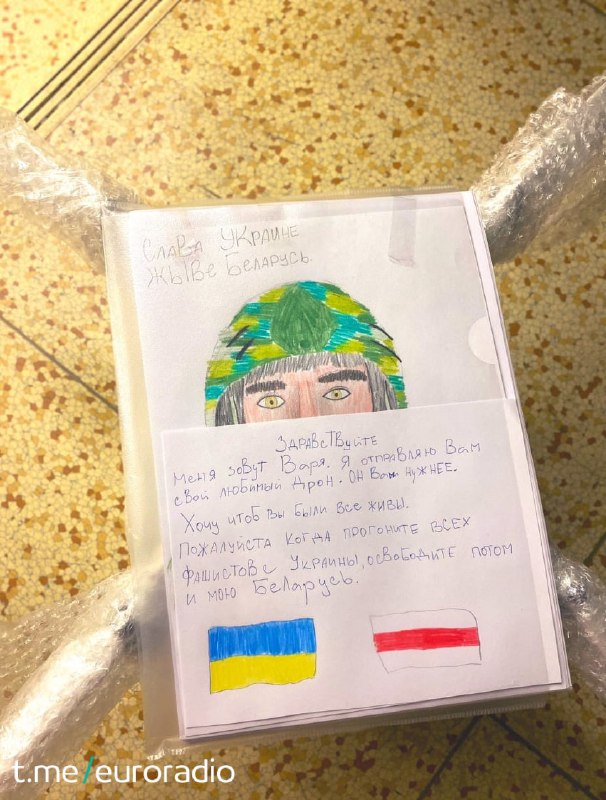 СЛАВА УКРАИНЕ
ЖЫВЕ БЕЛАРУСЬ.
ЗДРАВСТВУЙТЕ
Меня зовут Варя. Я отправляю Вам
свой любимый дрон. Он Вам нужнее.
Хочу чтоб вы были все живы.
Пожалуйста когда прогоните всех
фашистов с Украины, освободите потом
и мою Беларусь.
t.me/euroradio